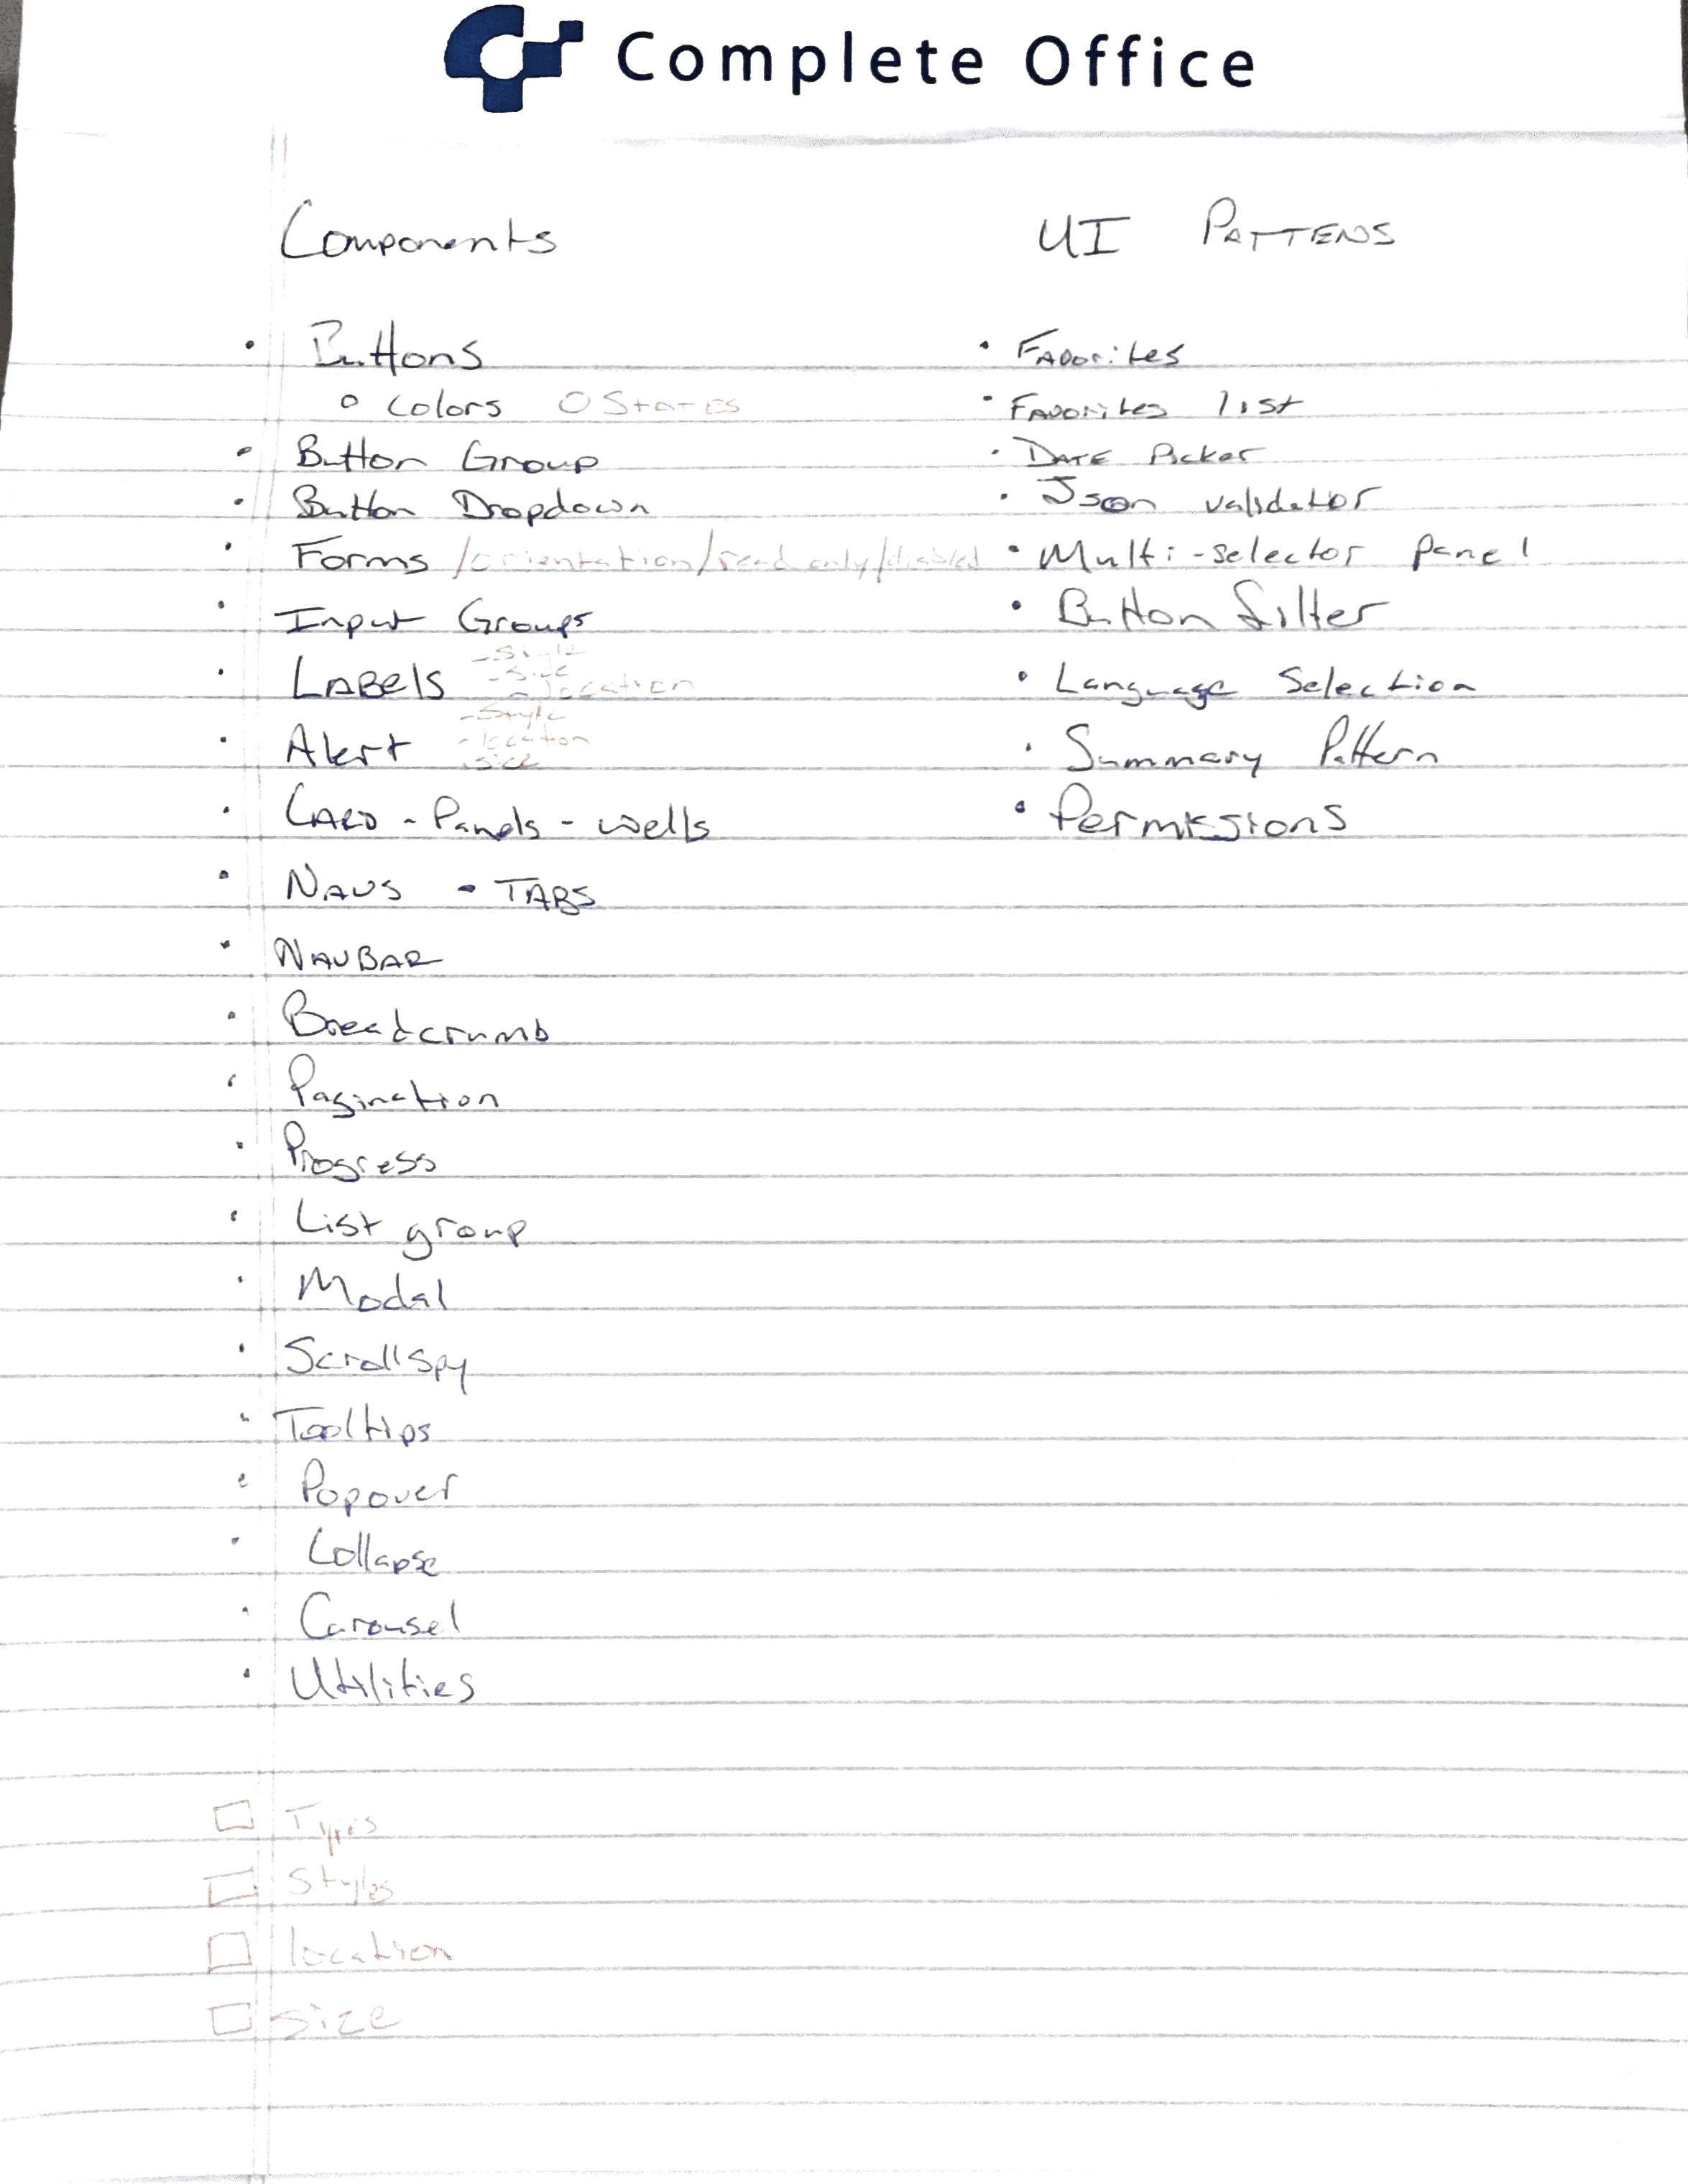 Complete Office
Components
• Buttons
o Colors O States
• Button Group
• Button Dropdown
• Forms /orientation/read only/disabled
• Input Groups
• LABels
- Style
- Size
- location
• Alert
- Style
- location
- size
• CARD - Panels - wells
• NAVS - TABS
• NAVBAR
• Breadcrumb
• Pagination
• Progress
• List group
• Modal
• Scrollspy
• Tooltips
• Popover
• Collapse
• Carousel
• Utilities
□ Types
□ Styles
□ location
□ size
UI PATTENS
• FAVorites
• FAVorites list
• DATE Picker
• Json validator
• Multi-selector panel
• Button filter
• Language Selection
• Summary Pattern
• Permissions